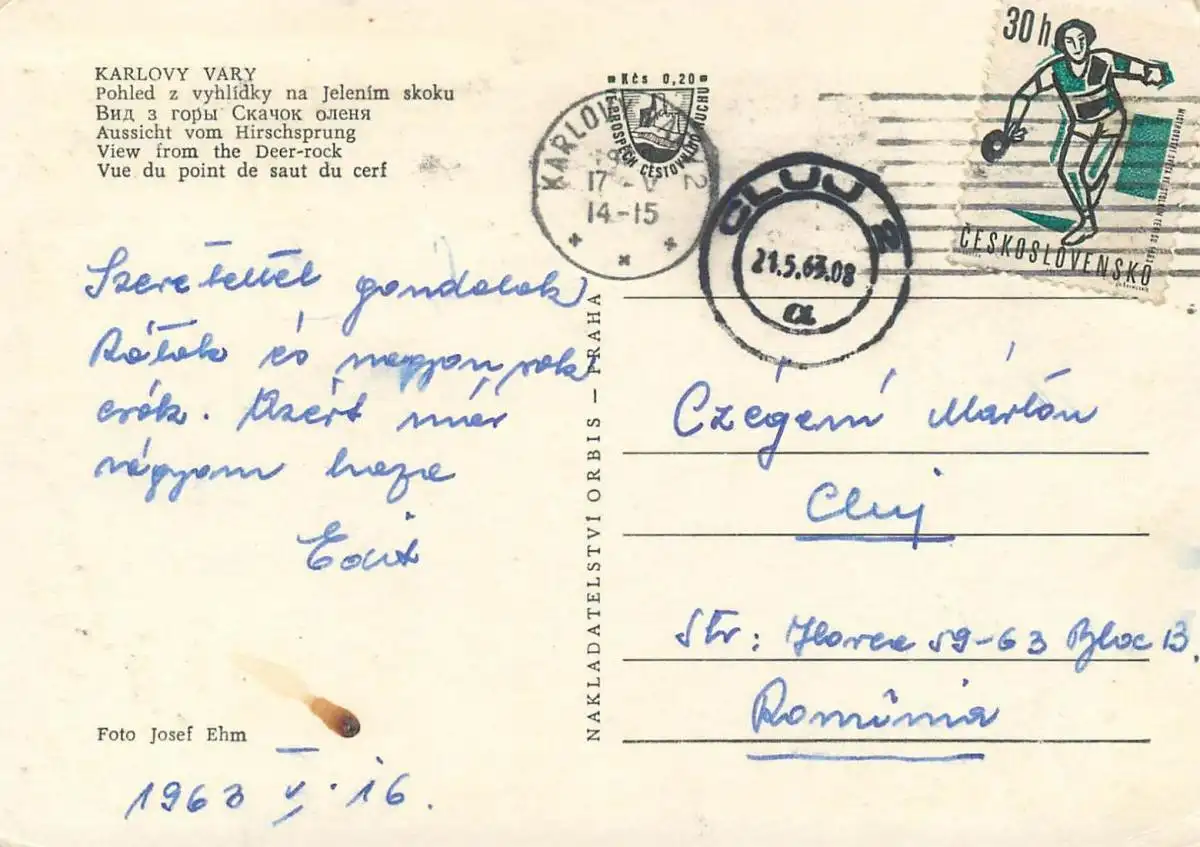 KARLOVY VARY
Pohled z vyhlídky na Jelením skoku
Вид з горы Скачок оленя
Aussicht vom Hirschsprung
View from the Deer-rock
Vue du point de saut du cerf
Kčs 0,20
VE PROSPĚCH CESTOVNÍHO RUCHU
KARLOVY 2
17 -V
14-15
CLUJ 2
21.5.63.08
a
30 h
ČESKOSLOVENSKO
Szeretettel gondolok
Rátok és nagyon sok
csók. Azért már
vágyom haza
Edit
NAKLADATELSTVÍ ORBIS – PRAHA
Czégeni Márton
Cluj
Str: Horea 59-63 Bloc B.
România
Foto Josef Ehm
1963 V. 16.